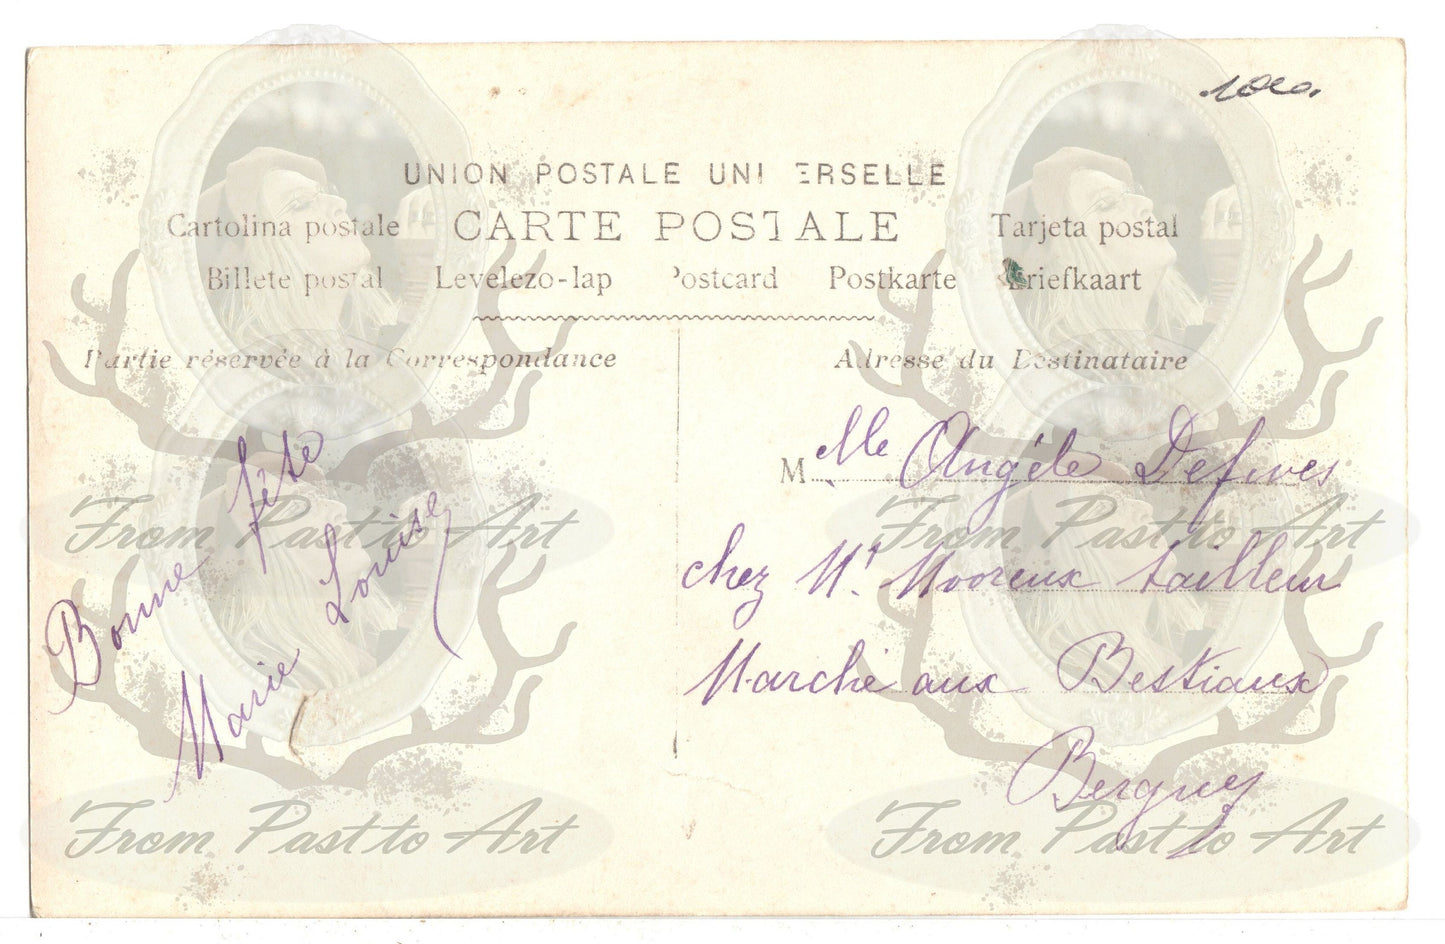 1020.
UNION POSTALE UNI ERSELLE
Cartolina postale CARTE POSTALE Tarjeta postal
Billete postal Levelezo-lap Postcard Postkarte Briefkaart
Partie réservée à la Correspondance
Adresse du Destinataire
Bonne fête
Marie Louise
M elle Angéle Defives
chez Mr. Mooreux tailleur
Marché aux Bestiaux
Bergues
From Past to Art
From Past to Art
From Past to Art
From Past to Art